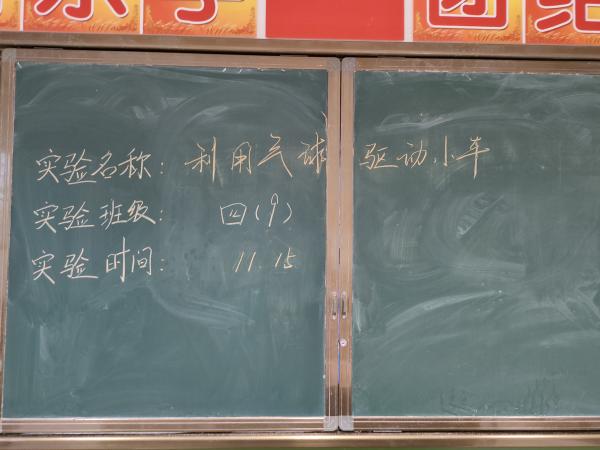 团结
实验名称：利用气球驱动小车
实验班级：四(9)
实验时间：11.15